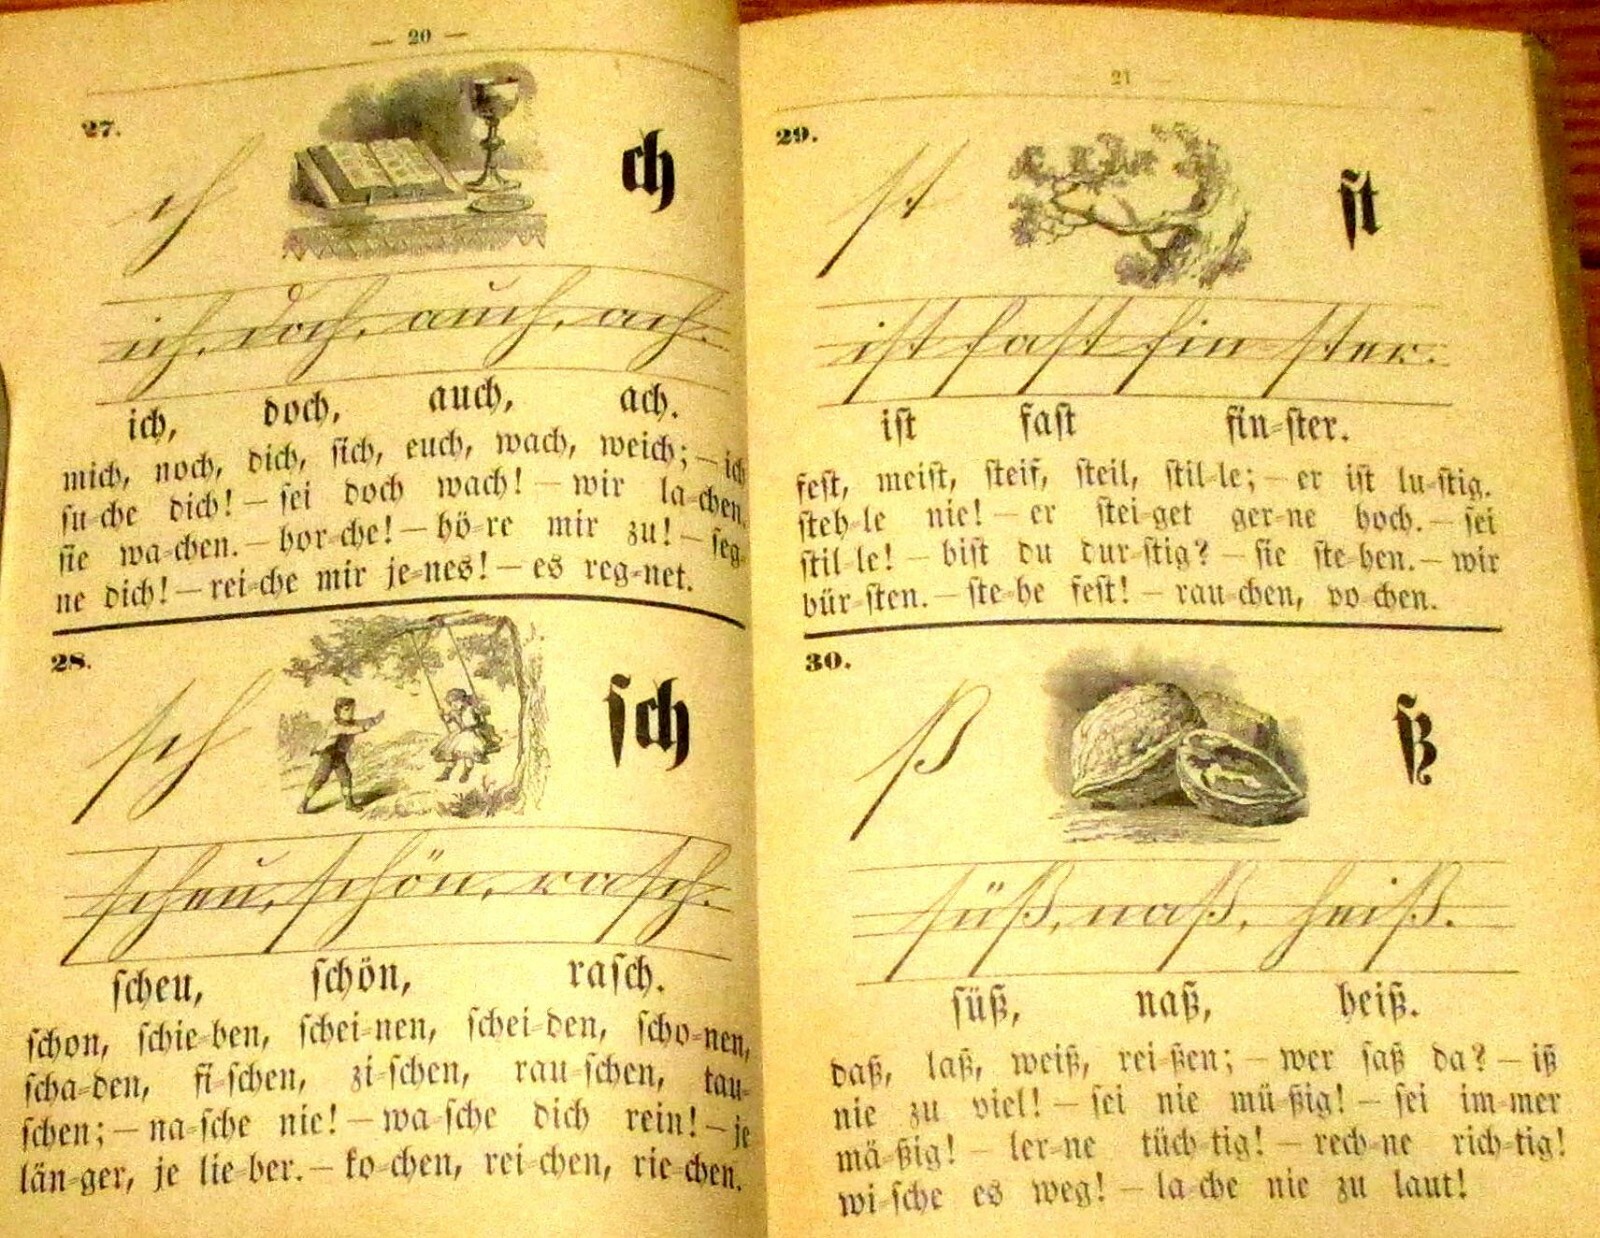 — 20 —
27.
ch ch
ich, doch, auch, ach.
ich, doch, auch, ach.
mich, noch, dich, ſich, euch, wach, weich; — ich
ſu=che dich! — ſei doch wach! — wir la=chen.
ſie wa=chen. — hor=che! — hö=re mir zu! — ſeg=
ne dich! — rei=che mir je=nes! — es reg=net.
28.
ſch ſch
ſcheu, ſchön, raſch.
ſcheu, ſchön, raſch.
ſchon, ſchie=ben, ſchei=nen, ſchei=den, ſcho=nen,
ſcha=den, fi=ſchen, zi=ſchen, rau=ſchen, tau=
ſchen; — na=ſche nie! — wa=ſche dich rein! — je
län=ger, je lie=ber. — ko=chen, rei=chen, rie=chen.
— 21 —
29.
ſt ſt
iſt faſt fin=ſter.
iſt faſt fin=ſter.
feſt, meiſt, ſteif, ſteil, ſtil=le; — er iſt lu=ſtig.
ſteh=le nie! — er ſtei=get ger=ne hoch. — ſei
ſtil=le! — biſt du dur=ſtig? — ſie ſte=hen. — wir
bür=ſten. — ſte=he feſt! — rau=chen, po=chen.
30.
ß ß
ſüß, naß, heiß.
ſüß, naß, heiß.
daß, laß, weiß, rei=ßen; — wer ſaß da? — iß
nie zu viel! — ſei nie mü=ßig! — ſei im=mer
mä=ßig! — ler=ne tüch=tig! — rech=ne rich=tig!
wi=ſche es weg! — la=che nie zu laut!